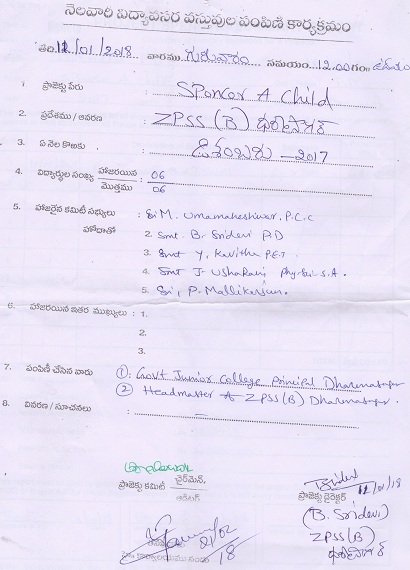 నెలవారి విద్యావసర వస్తువుల పంపిణి కార్యక్రమం
తేది. 12/01/2018 వారము గురువారం సమయం 12.00 గం.
1. ప్రాజెక్టు పేరు : Sponcer A Child
2. ప్రదేశము / ఆవరణ : ZPSS (B) ధర్మాపూర్
3. ఏ నెల కొఱకు : డిశంబరు - 2017
4. విద్యార్థుల సంఖ్య హాజరయిన / మొత్తము : 06 / 06
5. హాజరైన కమిటీ సభ్యులు హోదాతో : Sri M. Umamaheshwar. P.C.C
2. Smt. B. Sridevi P.D
3. Smt Y. Kavitha P.E.T
4. Smt J. Usha Rani Phy. Sci. S.A.
5. Sri, P. Mallikarjun.
6. హాజరయిన ఇతర ముఖ్యులు : 1.
2.
3.
7. పంపిణీ చేసిన వారు : ①: Govt Junior College Principal Dharmapur
② Headmaster ZPSS (B) Dharmapur.
8. వివరణ / సూచనలు :
ప్రాజెక్టు కమిటీ చైర్మెన్,
ఆడిటర్
ప్రాజెక్టు డైరెక్టర్ 12/01/18
(B. Sridevi)
ZPSS (B)
21/02/18